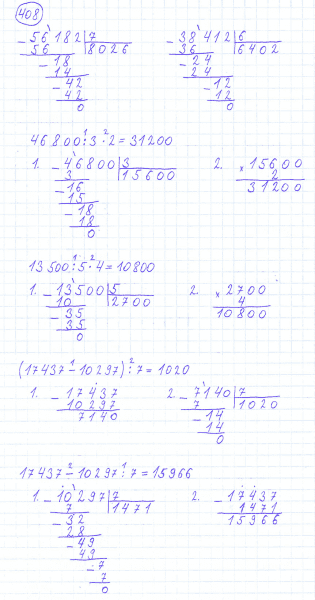 408
56182 | 7      38412 | 6
56 | 8026      36 | 6402
- 18      - 24
14      24
- 42      - 12
42      12
0      0
46800 : 3 · 2 = 31200
1. - 46800 | 3      2. × 15600
3 | 15600      2
- 16      31200
15
- 18
18
0
13500 : 5 · 4 = 10800
1. - 13500 | 5      2. × 2700
10 | 2700      4
- 35      10800
35
0
(17437 - 10297) : 7 = 1020
1. - 17437      2. - 7140 | 7
10297      7 | 1020
7140      - 14
14
0
17437 - 10297 : 7 = 15966
1. - 10297 | 7      2. - 17437
7 | 1471      1471
- 32      15966
28
- 49
49
- 7
7
0